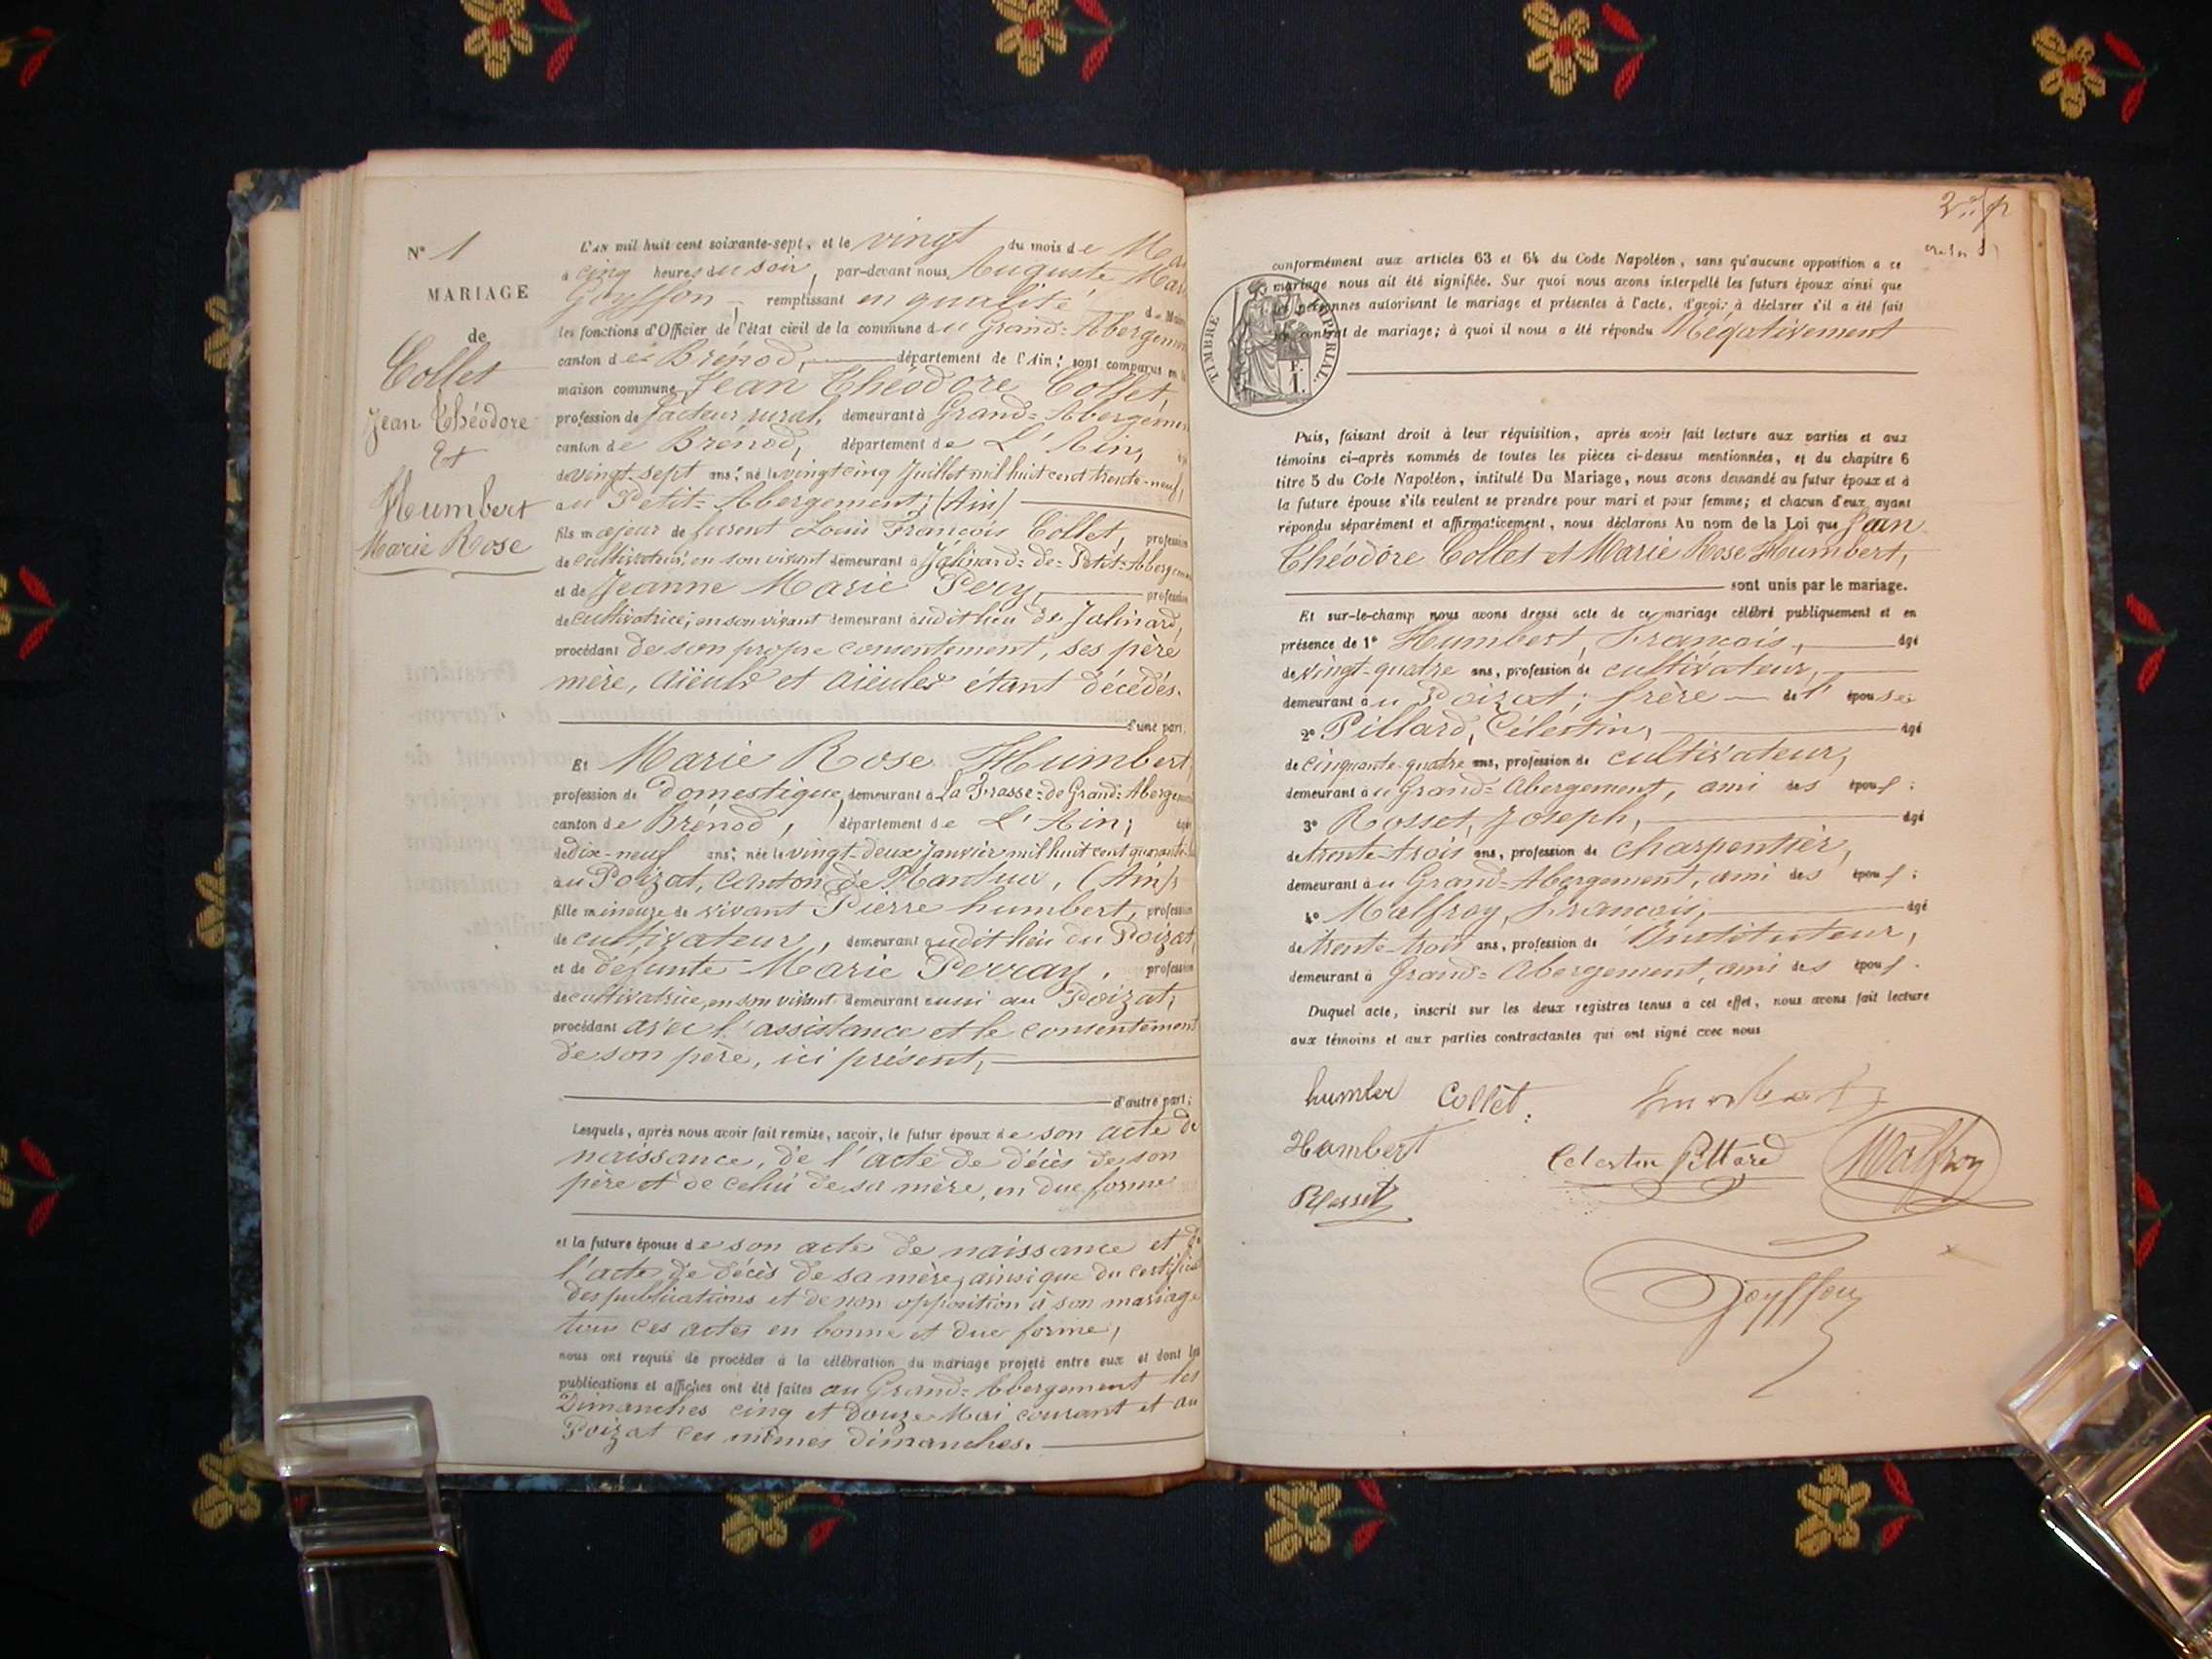 N° 1
MARIAGE
de
Collet
Jean Théodore
Et
Humbert
Marie Rose
L'AN mil huit cent soixante-sept, et le vingt du mois de Mai
à cinq heures du soir, par-devant nous, Auguste, Mari
Goyffon, remplissant en qualité de Maire
les fonctions d'Officier de l'état civil de la commune du Grand=Abergemen
canton de Brénod, département de l'Ain: sont comparus en la
maison commune, Jean Théodore Collet,
profession de facteur rural, demeurant à Grand=Abergemen
canton de Brénod, département de L'Ain,
de vingt-sept ans; né le vingt cinq Juillet mil huit cent trente-neuf,
au Petit=Abergement; (Ain)
fils majeur de furent Louis François Collet, profession
de cultivateur, en son vivant demeurant à Jalinard=de=Petit=Abergemen
et de Jeanne Marie Pery, profession
de cultivatrice, en son vivant demeurant audit lieu de Jalinard,
procédant de son propre consentement, ses père
mère, aïeuls et aïeules étant décédés.
d'une part;
Et Marie Rose Humbert,
profession de domestique, demeurant à La Frasse=de Grand=Abergement
canton de Brénod, département de L'Ain, âgée
de dix-neuf ans; née le vingt-deux Janvier mil huit cent quarante
au Poizat, canton de Nantua, (Ain),
fille mineure de vivant Pierre humbert, profession
de cultivateur, demeurant audit lieu du Poizat,
et de défunte Marie Perray, profession
de cultivatrice, en son vivant demeurant aussi au Poizat,
procédant avec l'assistance et le consentement
de son père, ici présent,
d'autre part;
Lesquels, après nous avoir fait remise, savoir, le futur époux de son acte de
naissance, de l'acte de décès de son
père et de celui de sa mère, en due forme
et la future épouse de son acte de naissance et de
l'acte de décès de sa mère, ainsi que du certificat
des publications et de non opposition à son mariage
tous ces actes en bonne et due forme,
nous ont requis de procéder à la célébration du mariage projeté entre eux et dont les
publications et affiches ont été faites au Grand=Abergement les
Dimanches cinq et douze Mai courant et au
Poizat ces mêmes dimanches.
conformément aux articles 63 et 64 du Code Napoléon, sans qu'aucune opposition a ce
mariage nous ait été signifiée. Sur quoi nous avons interpellé les futurs époux ainsi que
les personnes autorisant le mariage et présentes à l'acte, d'avoir à déclarer s'il a été fait
un contrat de mariage; à quoi il nous a été répondu Négativement
TIMBRE IMPÉRIAL.
F.
1.
Puis, faisant droit à leur réquisition, après avoir fait lecture aux parties et aux
témoins ci-après nommés de toutes les pièces ci-dessus mentionnées, et du chapitre 6
titre 5 du Code Napoléon, intitulé Du Mariage, nous avons demandé au futur époux et à
la future épouse s'ils veulent se prendre pour mari et pour femme; et chacun d'eux ayant
répondu séparément et affirmativement, nous déclarons Au nom de la Loi que Jean
Théodore Collet et Marie Rose Humbert,
sont unis par le mariage.
Et sur-le-champ nous avons dressé acte de ce mariage célébré publiquement et en
présence de 1° Humbert, François, âgé
de vingt-quatre ans, profession de cultivateur,
demeurant au Poizat; frère de l'épouse
2° Pillard, Célestin, âgé
de cinquante-quatre ans, profession de cultivateur,
demeurant au Grand=Abergement, ami des épous;
3° Rosset, Joseph, âgé
de trente-trois ans, profession de charpentier,
demeurant au Grand=Abergement, ami des épous;
4° Malfroy, François, âgé
de trente-trois ans, profession de Instituteur,
demeurant à Grand=Abergement, ami des épous.
Duquel acte, inscrit sur les deux registres tenus à cet effet, nous avons fait lecture
aux témoins et aux parties contractantes qui ont signé avec nous
humber Collet. Humbert
Humbert Celestin Pillard Malfroy
Rosset
Goyffon